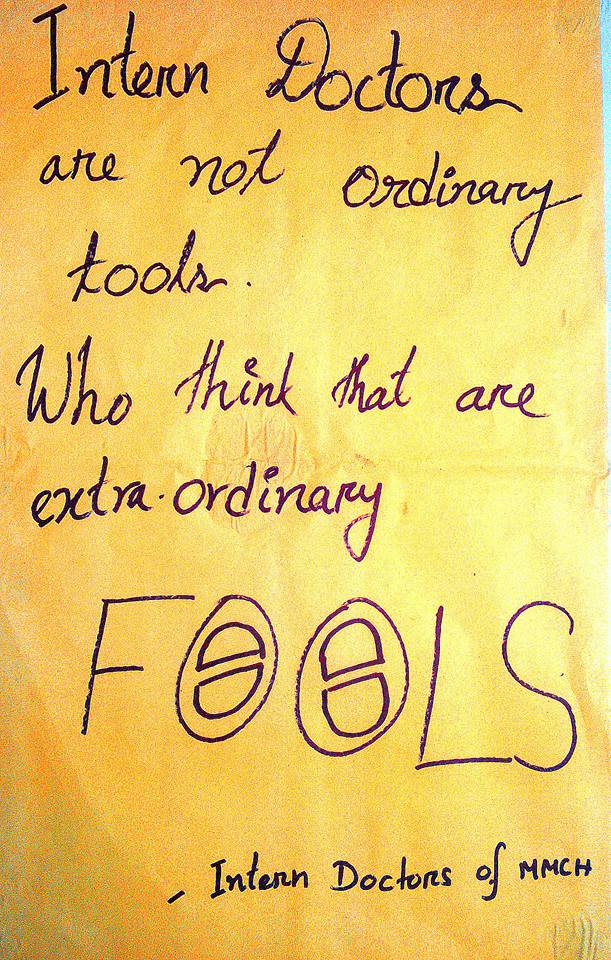 Intern Doctors
are not ordinary
tools.
Who think that are
extra-ordinary
FOOLS
- Intern Doctors of MMCH